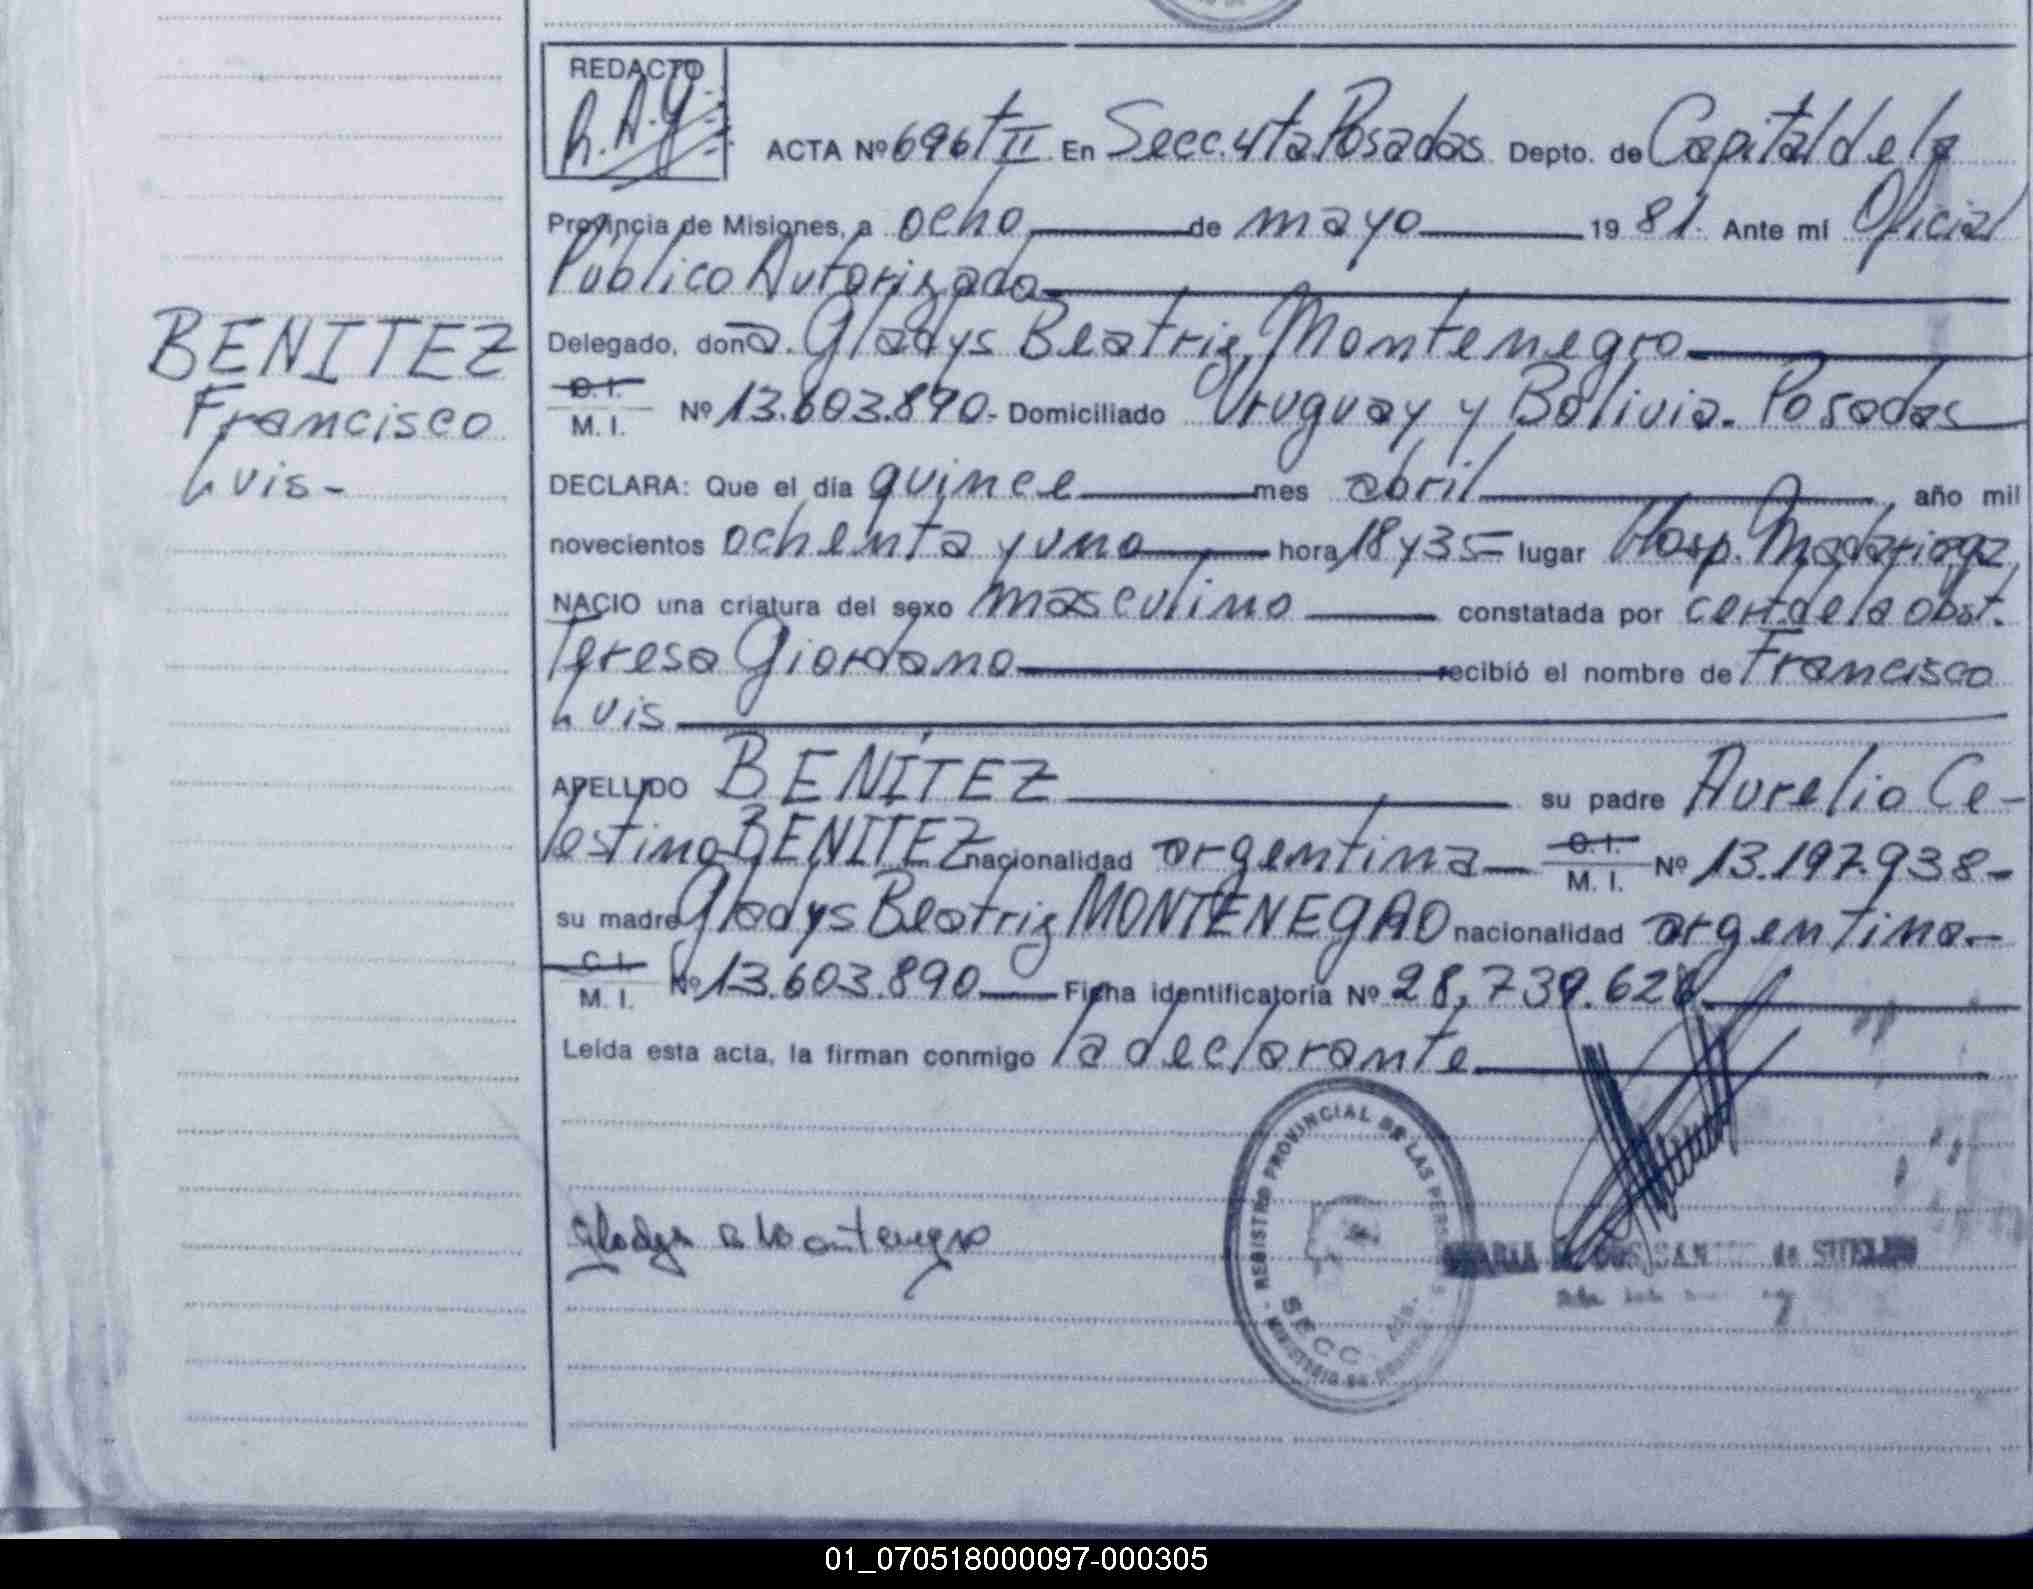 REDACTO
ACTA Nº 696 t II En Secc. 4ta. Posadas Depto. de Capital de la
Provincia de Misiones, a ocho de mayo 1981. Ante mí Oficial
Público Autorizado
Delegado, doña. Gladys Beatriz Montenegro
BENITEZ
Francisco
Luis-
C. I.
M. I. Nº 13.603.890- Domiciliado Uruguay y Bolivia. Posadas
DECLARA: Que el día quince mes abril, año mil
novecientos ochenta y uno hora 18 y 35= lugar Hosp. Madariaga
NACIO una criatura del sexo masculino constatada por cert. de la obst.
Teresa Giordano recibió el nombre de Francisco
Luis
APELLIDO BENÍTEZ su padre Aurelio Ce-
lestino BENITEZ nacionalidad argentina C. I. M. I. Nº 13.197.938-
su madre Gladys Beatriz MONTENEGRO nacionalidad argentina-
C. I.
M. I. Nº 13.603.890 Ficha identificatoria Nº 28,739.628
Leída esta acta, la firman conmigo la declarante
REGISTRO PROVINCIAL DE LAS
SECC
Gladys Montenegro
MARIA DOS SANTOS de
01_070518000097-000305